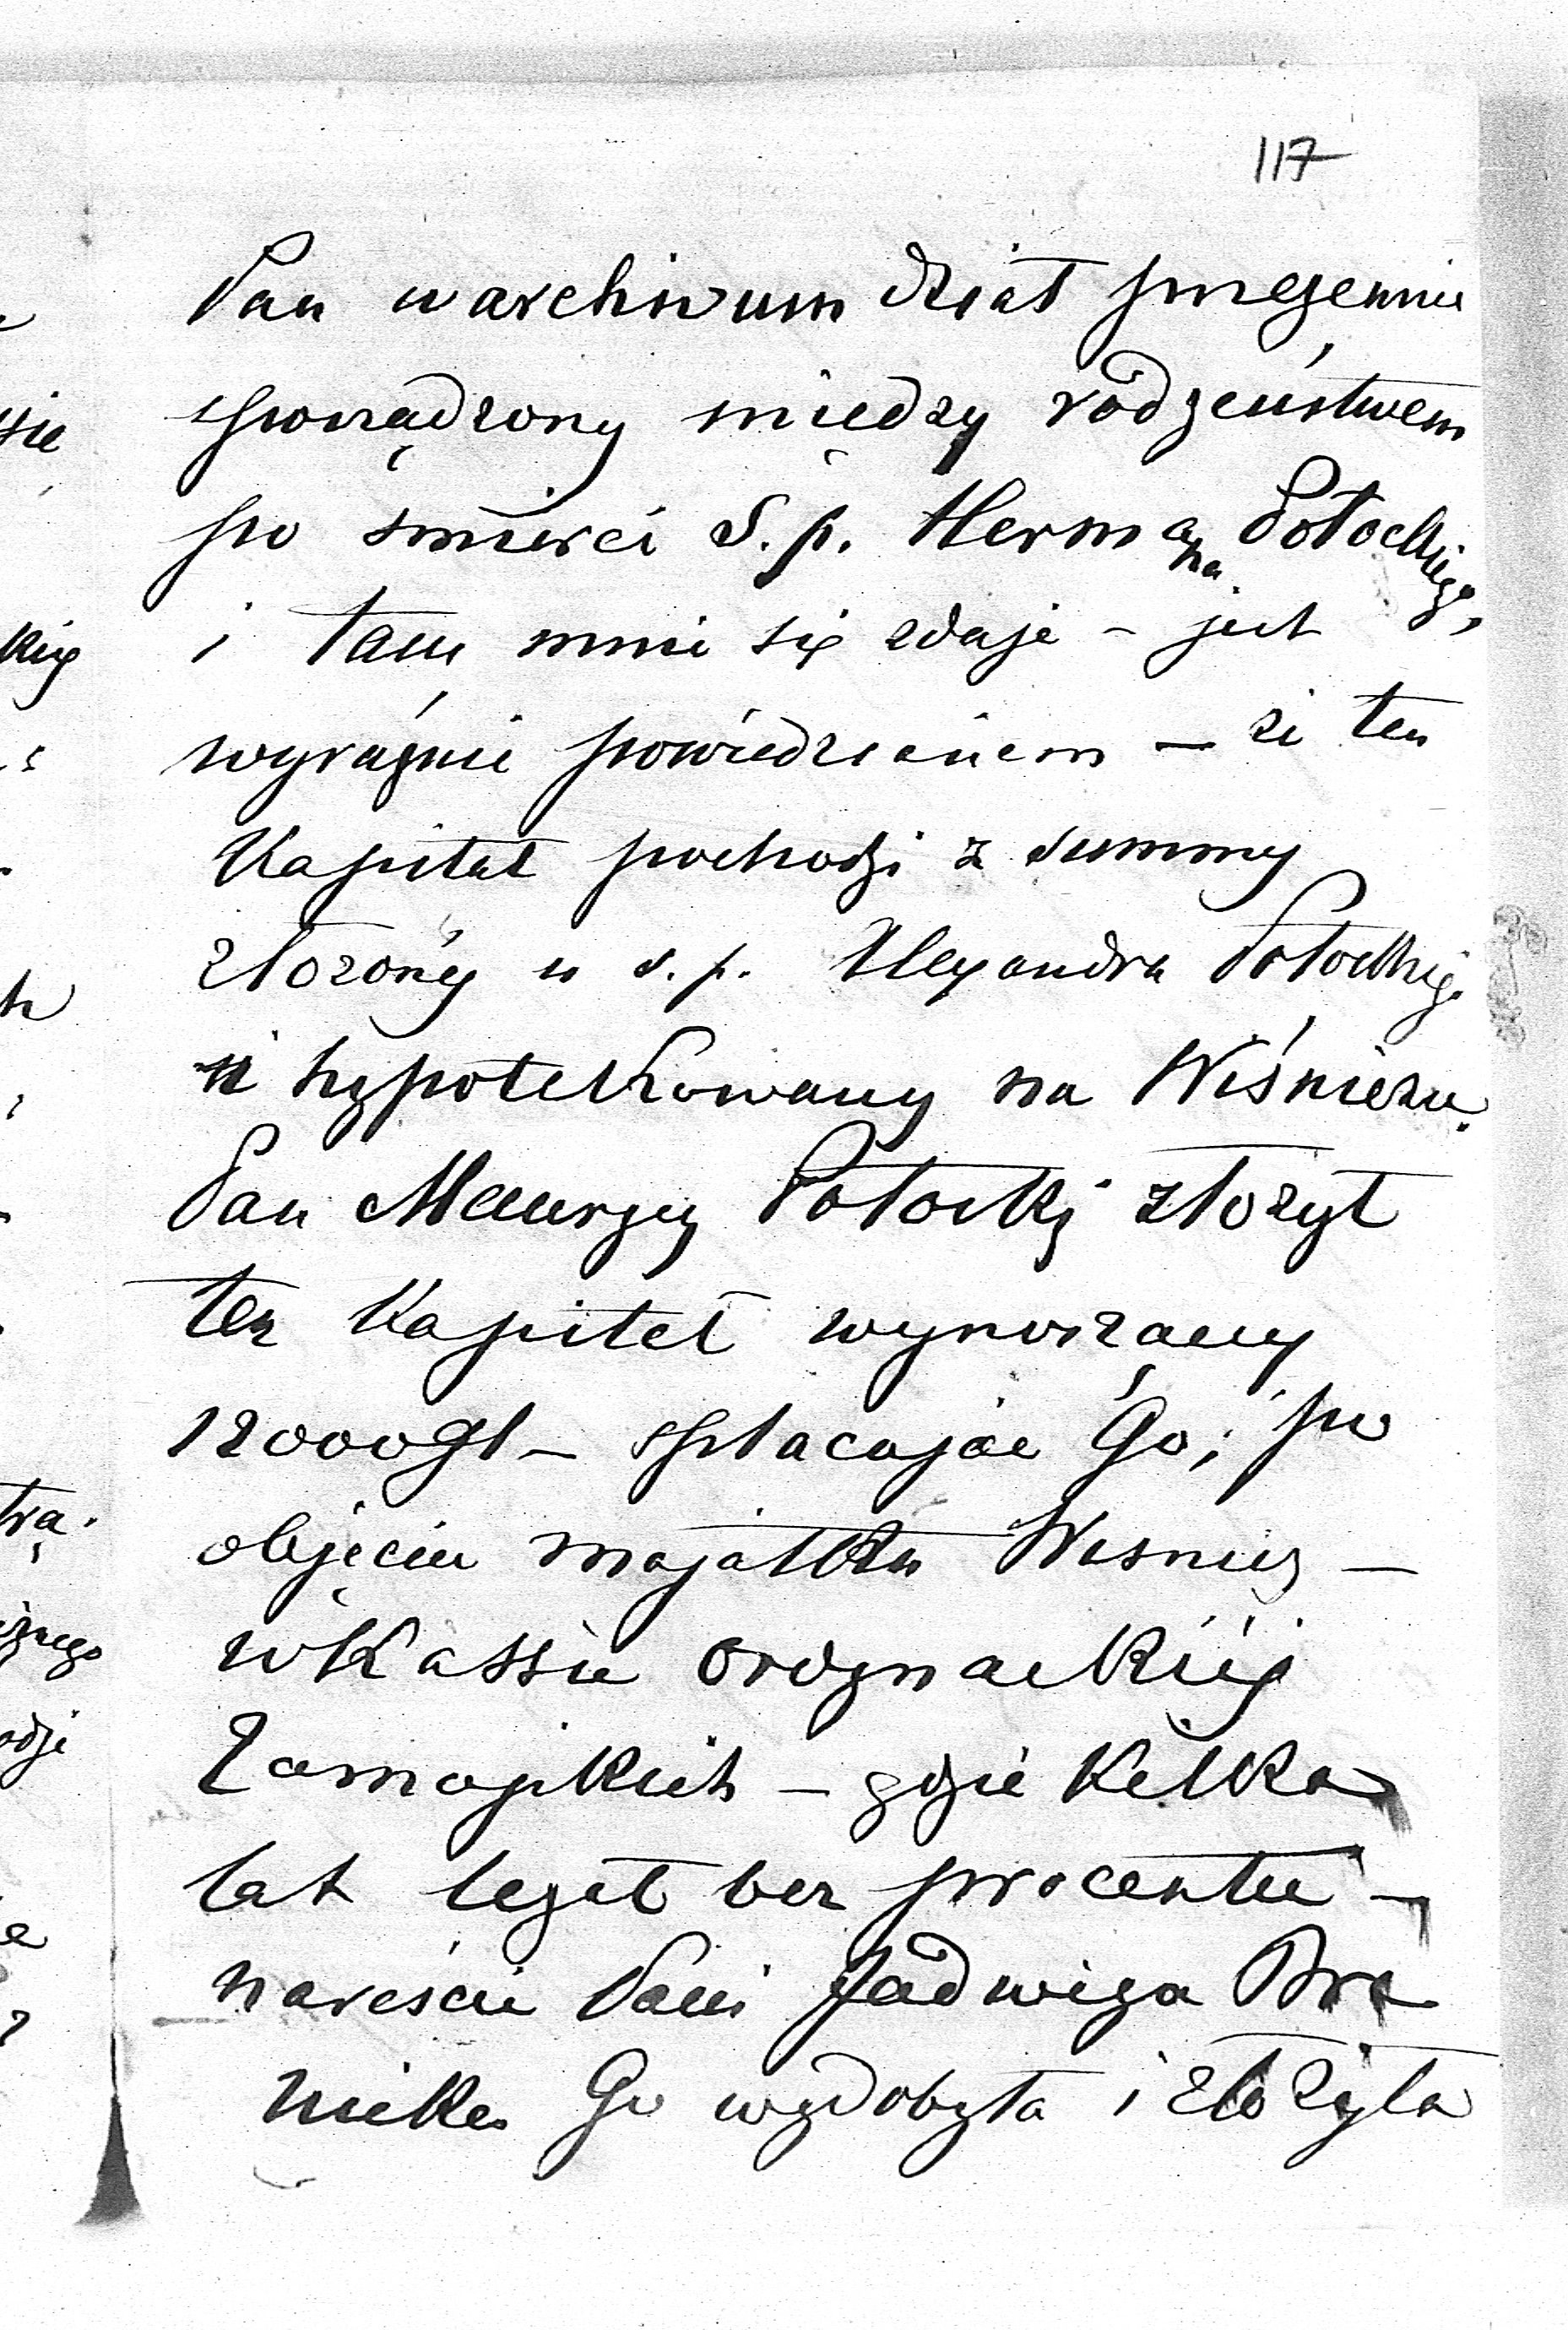 117
Pan w archivum dział przezemnie
sporządzony między rodzeństwem
po śmierci S. p. Hermana Potockiego,
i tam mnie się zdaje – jest
wyraźnie powiedzianem – że ten
Kapitał pochodzi z summy
złożonéj u s. p. Alexandra Potockiego
i hypotekowany na Wiśniezu.
Pan Maurycy Potocki złożył
ten Kapitał wynoszący
12000 zł – spłacając Go, po
objęciu majątku Wisnicz –
w Kassie ordynackiéj
Zamojskich – gdzie kilka
lat leżał bez procentu –
nareście Pani Jadwiga Bra
nicka Go wydobyła i złożyła